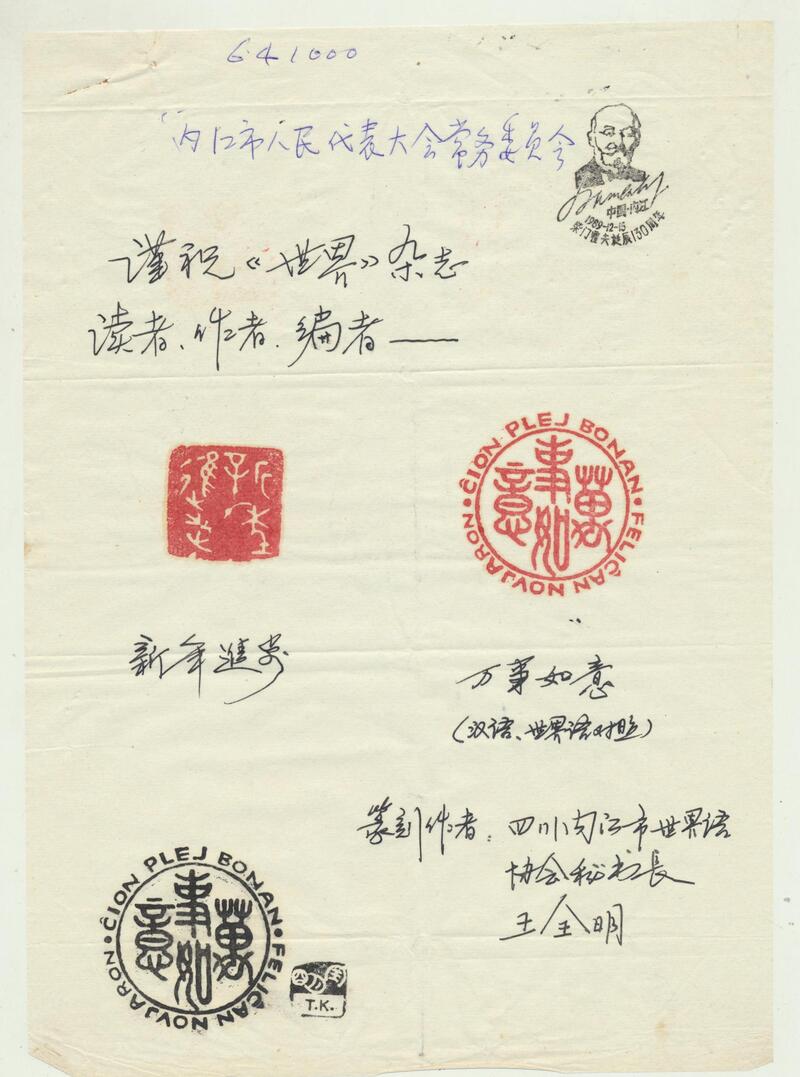 641000
内江市人民代表大会常务委员会
中国·内江
1989-12-15
柴门霍夫誕辰130周年
谨祝《世界》杂志
读者、作者、编者——
新年進步
ĈION PLEJ BONAN · FELIĈAN NOVJARON ·
萬事如意
新年進步
万事如意
(汉语、世界语对照)
篆刻作者：四川内江市世界语
协会秘书長
王全明
ĈION PLEJ BONAN · FELIĈAN NOVJARON ·
萬事如意
T.K.